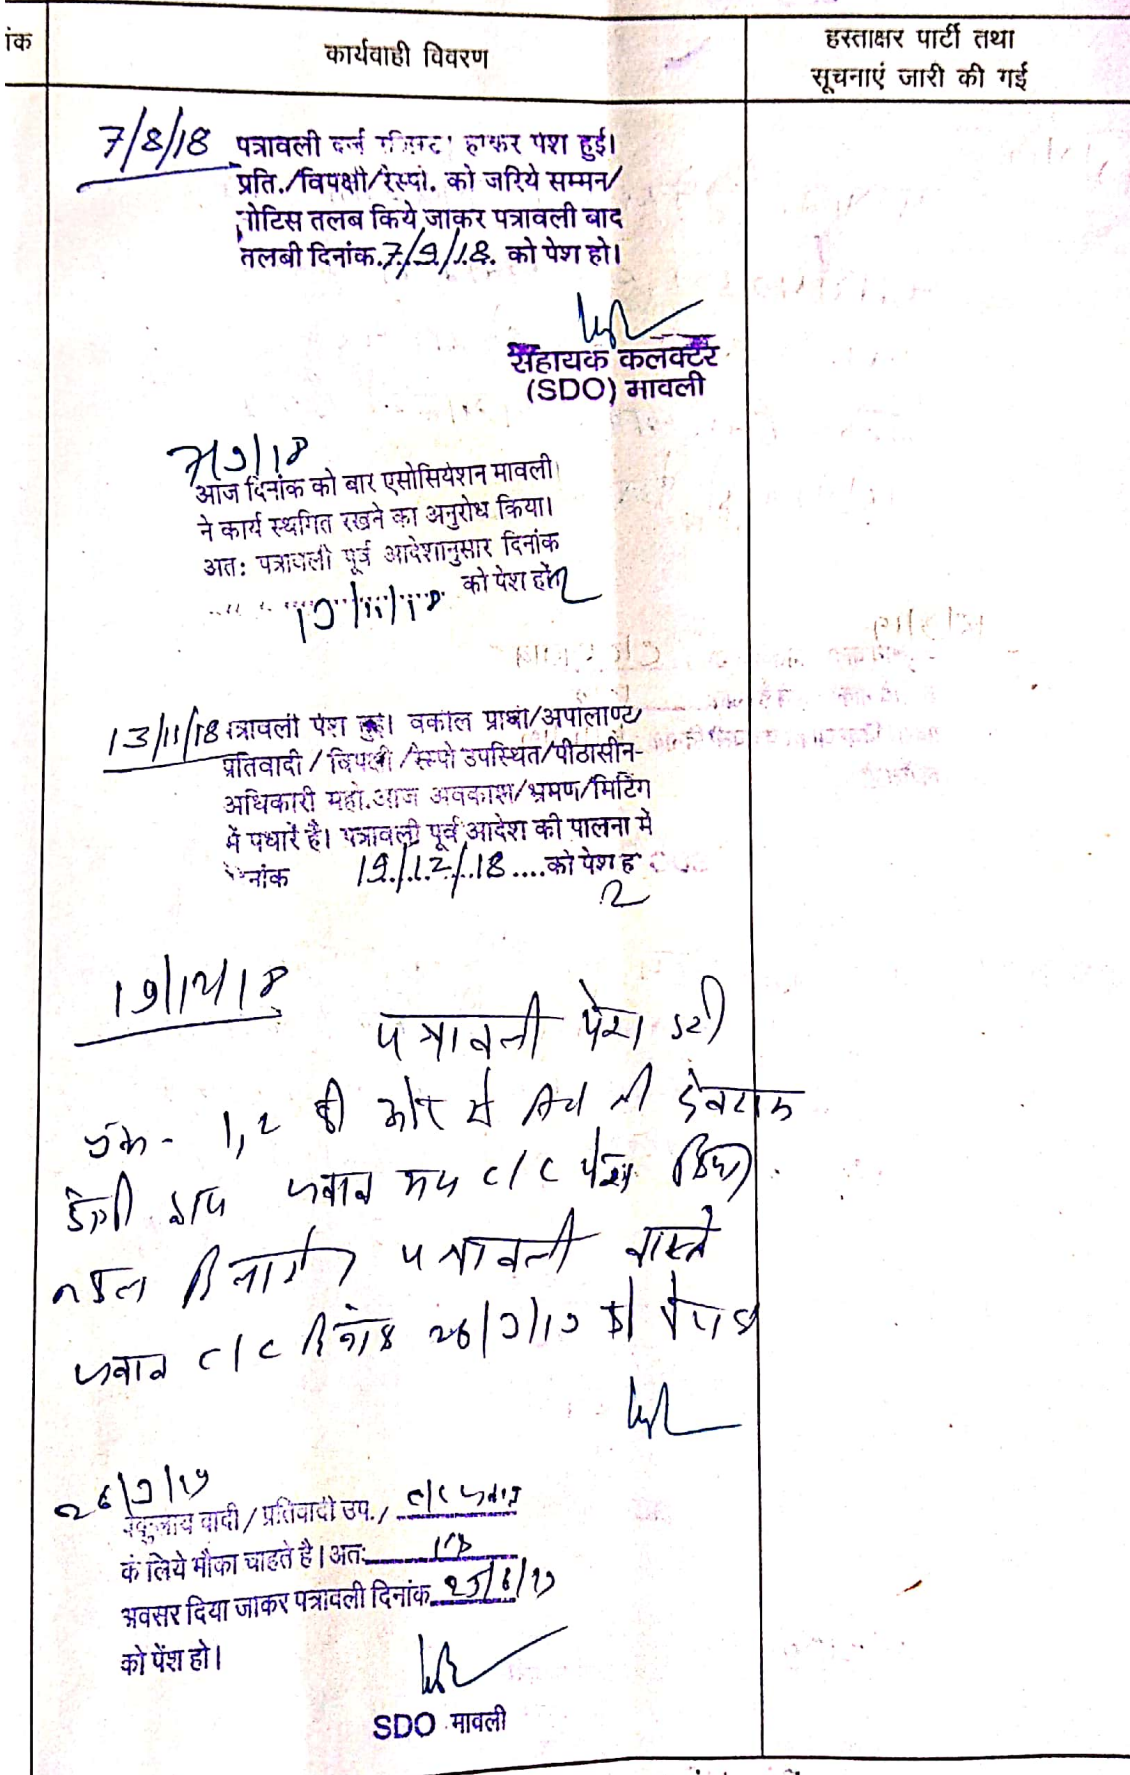 ांक
कार्यवाही विवरण
हस्ताक्षर पार्टी तथा
सूचनाएं जारी की गई
7/8/18 पत्रावली दर्ज होकर पेश हुई।
प्रति./विपक्षी/रेस्पो. को जरिये सम्मन/
नोटिस तलब किये जाकर पत्रावली बाद
तलबी दिनांक 7/9/18. को पेश हो।
सहायक कलक्टर
(SDO) मावली
7/9/18
आज दिनांक को बार एसोसियेशन मावली
ने कार्य स्थगित रखने का अनुरोध किया।
अत: पत्रावली पूर्व आदेशानुसार दिनांक
को पेश हो
13/11/18 पत्रावली पेश हुई। वकील प्रार्थी/अपीलाण्ट/
प्रतिवादी / विपक्षी / रेस्पो उपस्थित/पीठासीन-
अधिकारी महो. आज अवकाश/भ्रमण/मिटिंग
में पधारें है। पत्रावली पूर्व आदेश की पालना में
दिनांक 19/12/18 ....को पेश ह
19/12/18
पत्रावली पेश हुई
1, 2 की ओर से
जवाब मय c/c पेश किया
नकल दिलाई पत्रावली वास्ते
जवाब c/c दिनांक 26/3/19 को पेश हो
26/3/19
वादी / प्रतिवादी उप./ c/c जवाब
के लिये मौका चाहते है। अत:
अवसर दिया जाकर पत्रावली दिनांक 25/6/19
को पेंश हो।
SDO मावली